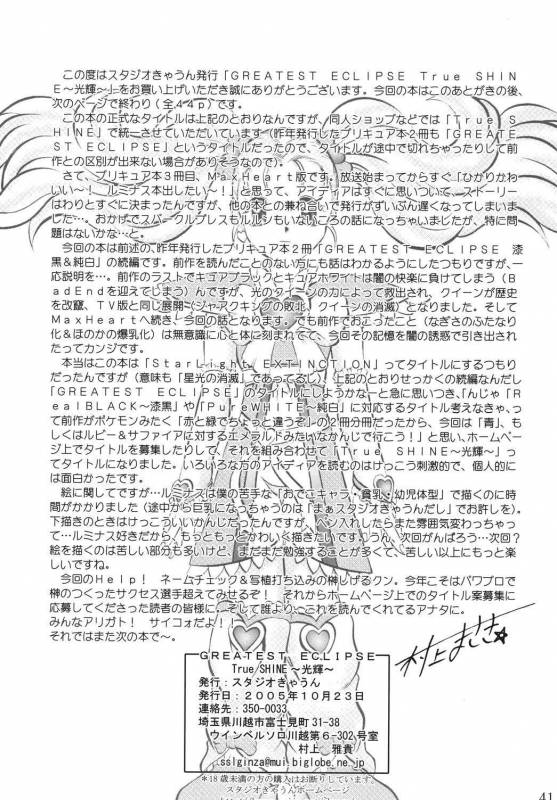 この度はスタジオきゃうん発行「GREATEST ECLIPSE True SHIN
E～光輝～」をお買い上げいただき誠にありがとうございます。今回の本はこのあとがきの後、
次のページで終わり（全44p）です。
この本の正式なタイトルは上記のとおりなんですが、同人ショップなどでは「True S
HINE」で統一させていただいています（昨年発行したプリキュア本2冊も「GREATE
ST ECLIPSE」というタイトルだったので、タイトルが途中で切れちゃったりして前
作との区別が出来ない場合がありそうなので）。
さて、プリキュア本3冊目、MaxHeart版です。放送始まってからすぐ「ひかりかわ
いい～！ ルミナス本出したい～！」と思って、アイディアはすぐに思いついて、ストーリー
はわりとすぐに決まったんですが、他の本との兼ね合いで発行がずいぶん遅くなってしまいま
した…。おかげでスパークルブレスもルルンもいないころの話になっちゃいましたが、特に問
題はないかな…と。
今回の本は前述の、昨年発行したプリキュア本2冊「GREATEST ECLIPSE 漆
黒＆純白」の続編です。前作を読んだことのない方にも話はわかるようにしたつもりですが、一
応説明を…。前作のラストでキュアブラックとキュアホワイトは闇の快楽に負けてしまう（B
adEndを迎えてしまう）んですが、光のクイーンの力によって救出され、クイーンが歴史
を改竄、TV版と同じ展開（ジャアクキングの敗北、クイーンの消滅）となりました。そして
MaxHeartへ続き、今回の話となります。でも前作でおこったこと（なぎさのふたなり
化＆ほのかの爆乳化）は無意識に心と体に刻まれてて、今回その記憶を闇の誘惑で引き出され
たってカンジです。
本当はこの本は「StarLight EXTINCTION」ってタイトルにするつもり
だったんですが（意味も「星光の消滅」であってるし）、上記のとおりせっかくの続編なんだし
「GREATEST ECLIPSE」のタイトルにしようかな～と急に思いつき、んじゃ「R
ealBLACK～漆黒」や「PureWHITE～純白」に対応するタイトル考えなきゃ、っ
て前作がポケモンみたく「赤と緑でちょっと違うぞ」の2冊分冊だったから、今回は「青」、も
しくはルビー＆サファイアに対するエメラルドみたいなかんじで行こう！」と思い、ホームペー
ジ上でタイトルを募集したりして、それを組み合わせて「True SHINE～光輝～」っ
てタイトルになりました。いろいろな方のアイディアを読むのはけっこう刺激的で、個人的に
は面白かったです。
絵に関してですが…ルミナスは僕の苦手な「おでこキャラ・貧乳・幼児体型」で描くのに時
間がかかりました（途中から巨乳になっちゃうのは「まぁスタジオきゃうんだし」でお許しを）。
下描きのときはけっこういいかんじだったんですが、ペン入れしたらまた雰囲気変わっちゃっ
て…ルミナス好きだから、もっともっとかわいく描きたいです。うん、次回がんばろう…次回？
絵を描くのは苦しい部分も多いけど、まだまだ勉強することが多くて、苦しい以上にもっと楽
しいですね。
今回のHelp！ ネームチェック＆写植打ち込みの榊しげるクン。今年こそはパワプロで
榊のつくったサクセス選手超えてみせるぞ！ それからホームページ上でのタイトル案募集に
応募してくださった読者の皆様に、そして誰より、これを読んでくれてるアナタに。
みんなアリガト！ サイコォだよ！！
それではまた次の本で～。
村上まさき☆
GREATEST ECLIPSE
True SHINE～光輝～
発行：スタジオきゃうん
発行日：2005年10月23日
連絡先：350-0033
埼玉県川越市富士見町31-38
ウインベルソロ川越第6-302号室
村上 雅貴
sslginza@mui.biglobe.ne.jp
*18歳未満の方の購入はお断りしています。
スタジオきゃうんホームページ
41